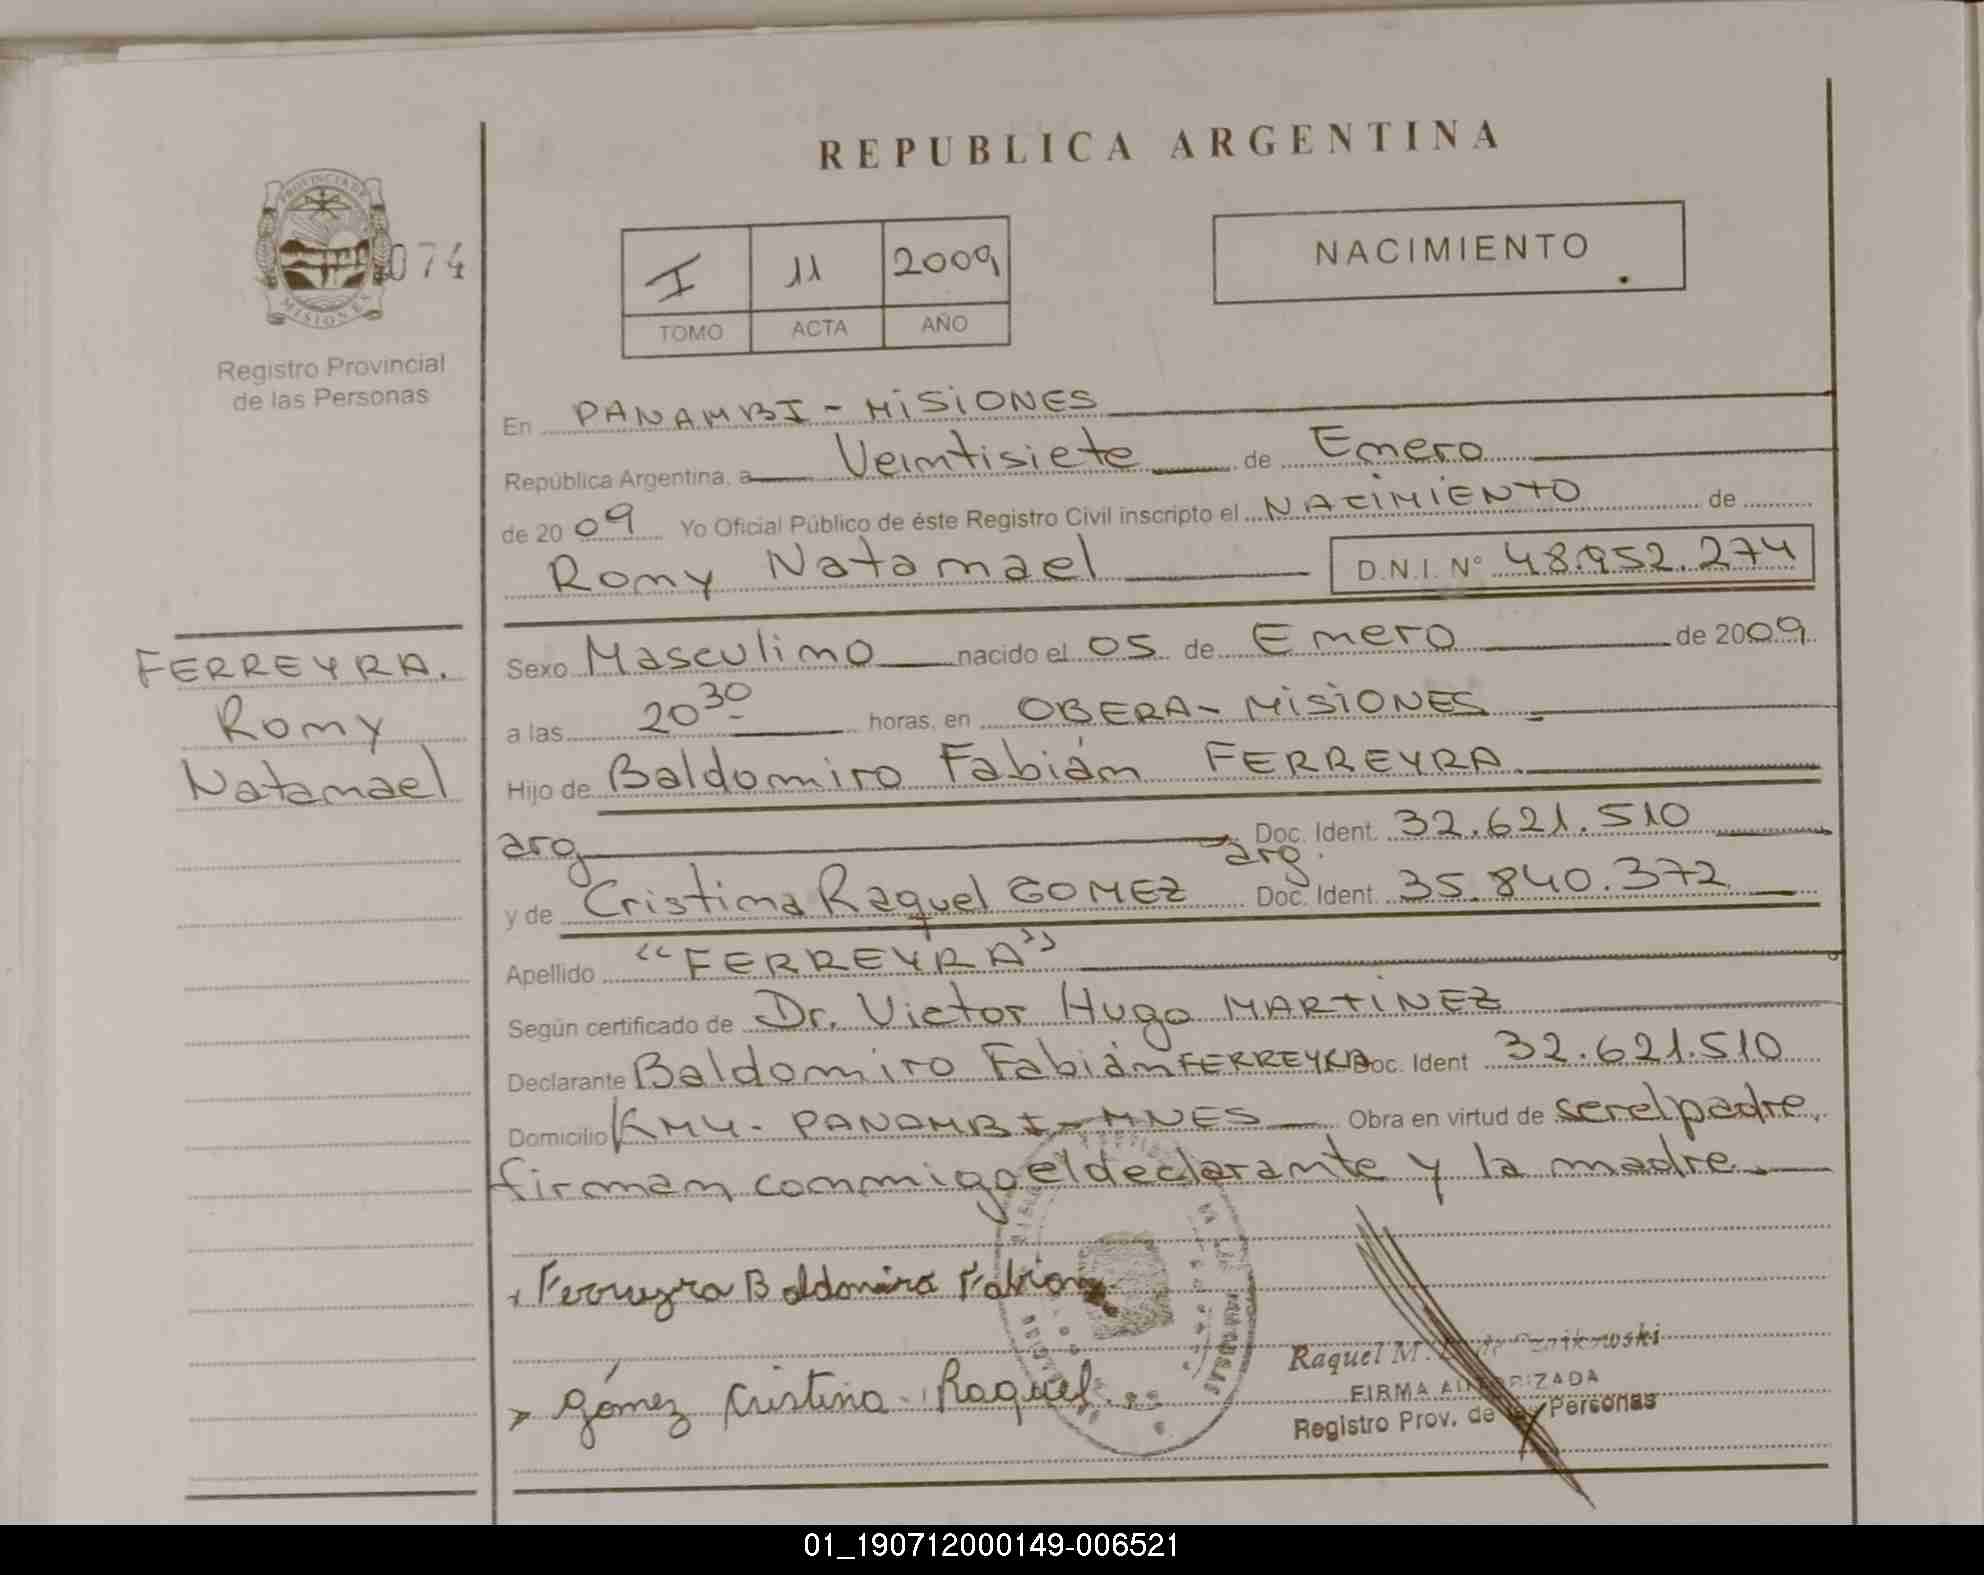 REPUBLICA ARGENTINA
PROVINCIA DE
MISIONES
074
Registro Provincial
de las Personas
I 11 2009
TOMO ACTA AÑO
NACIMIENTO
En PANAMBI - MISIONES
República Argentina, a Veintisiete de Enero
de 2009 Yo Oficial Público de éste Registro Civil inscripto el NACIMIENTO de
Romy Natanael D.N.I. Nº 48.952.274
FERREYRA.
Romy
Natanael
Sexo Masculino nacido el 05 de Enero de 2009
a las 20 30 horas, en OBERA - MISIONES
Hijo de Baldomiro Fabián FERREYRA
arg Doc. Ident. 32.621.510
y de Cristina Raquel GOMEZ arg. Doc. Ident. 35.840.372
Apellido "FERREYRA"
Según certificado de Dr. Victor Hugo MARTINEZ
Declarante Baldomiro Fabián FERREYRA Doc. Ident 32.621.510
Domicilio KM4 - PANAMBI - MNES Obra en virtud de ser el padre,
firman conmigo el declarante y la madre.
Ferreyra Baldomiro Fabian
Gómez Cristina Raquel
Raquel M.
FIRMA AUTORIZADA
Registro Prov. de las Personas
01_190712000149-006521